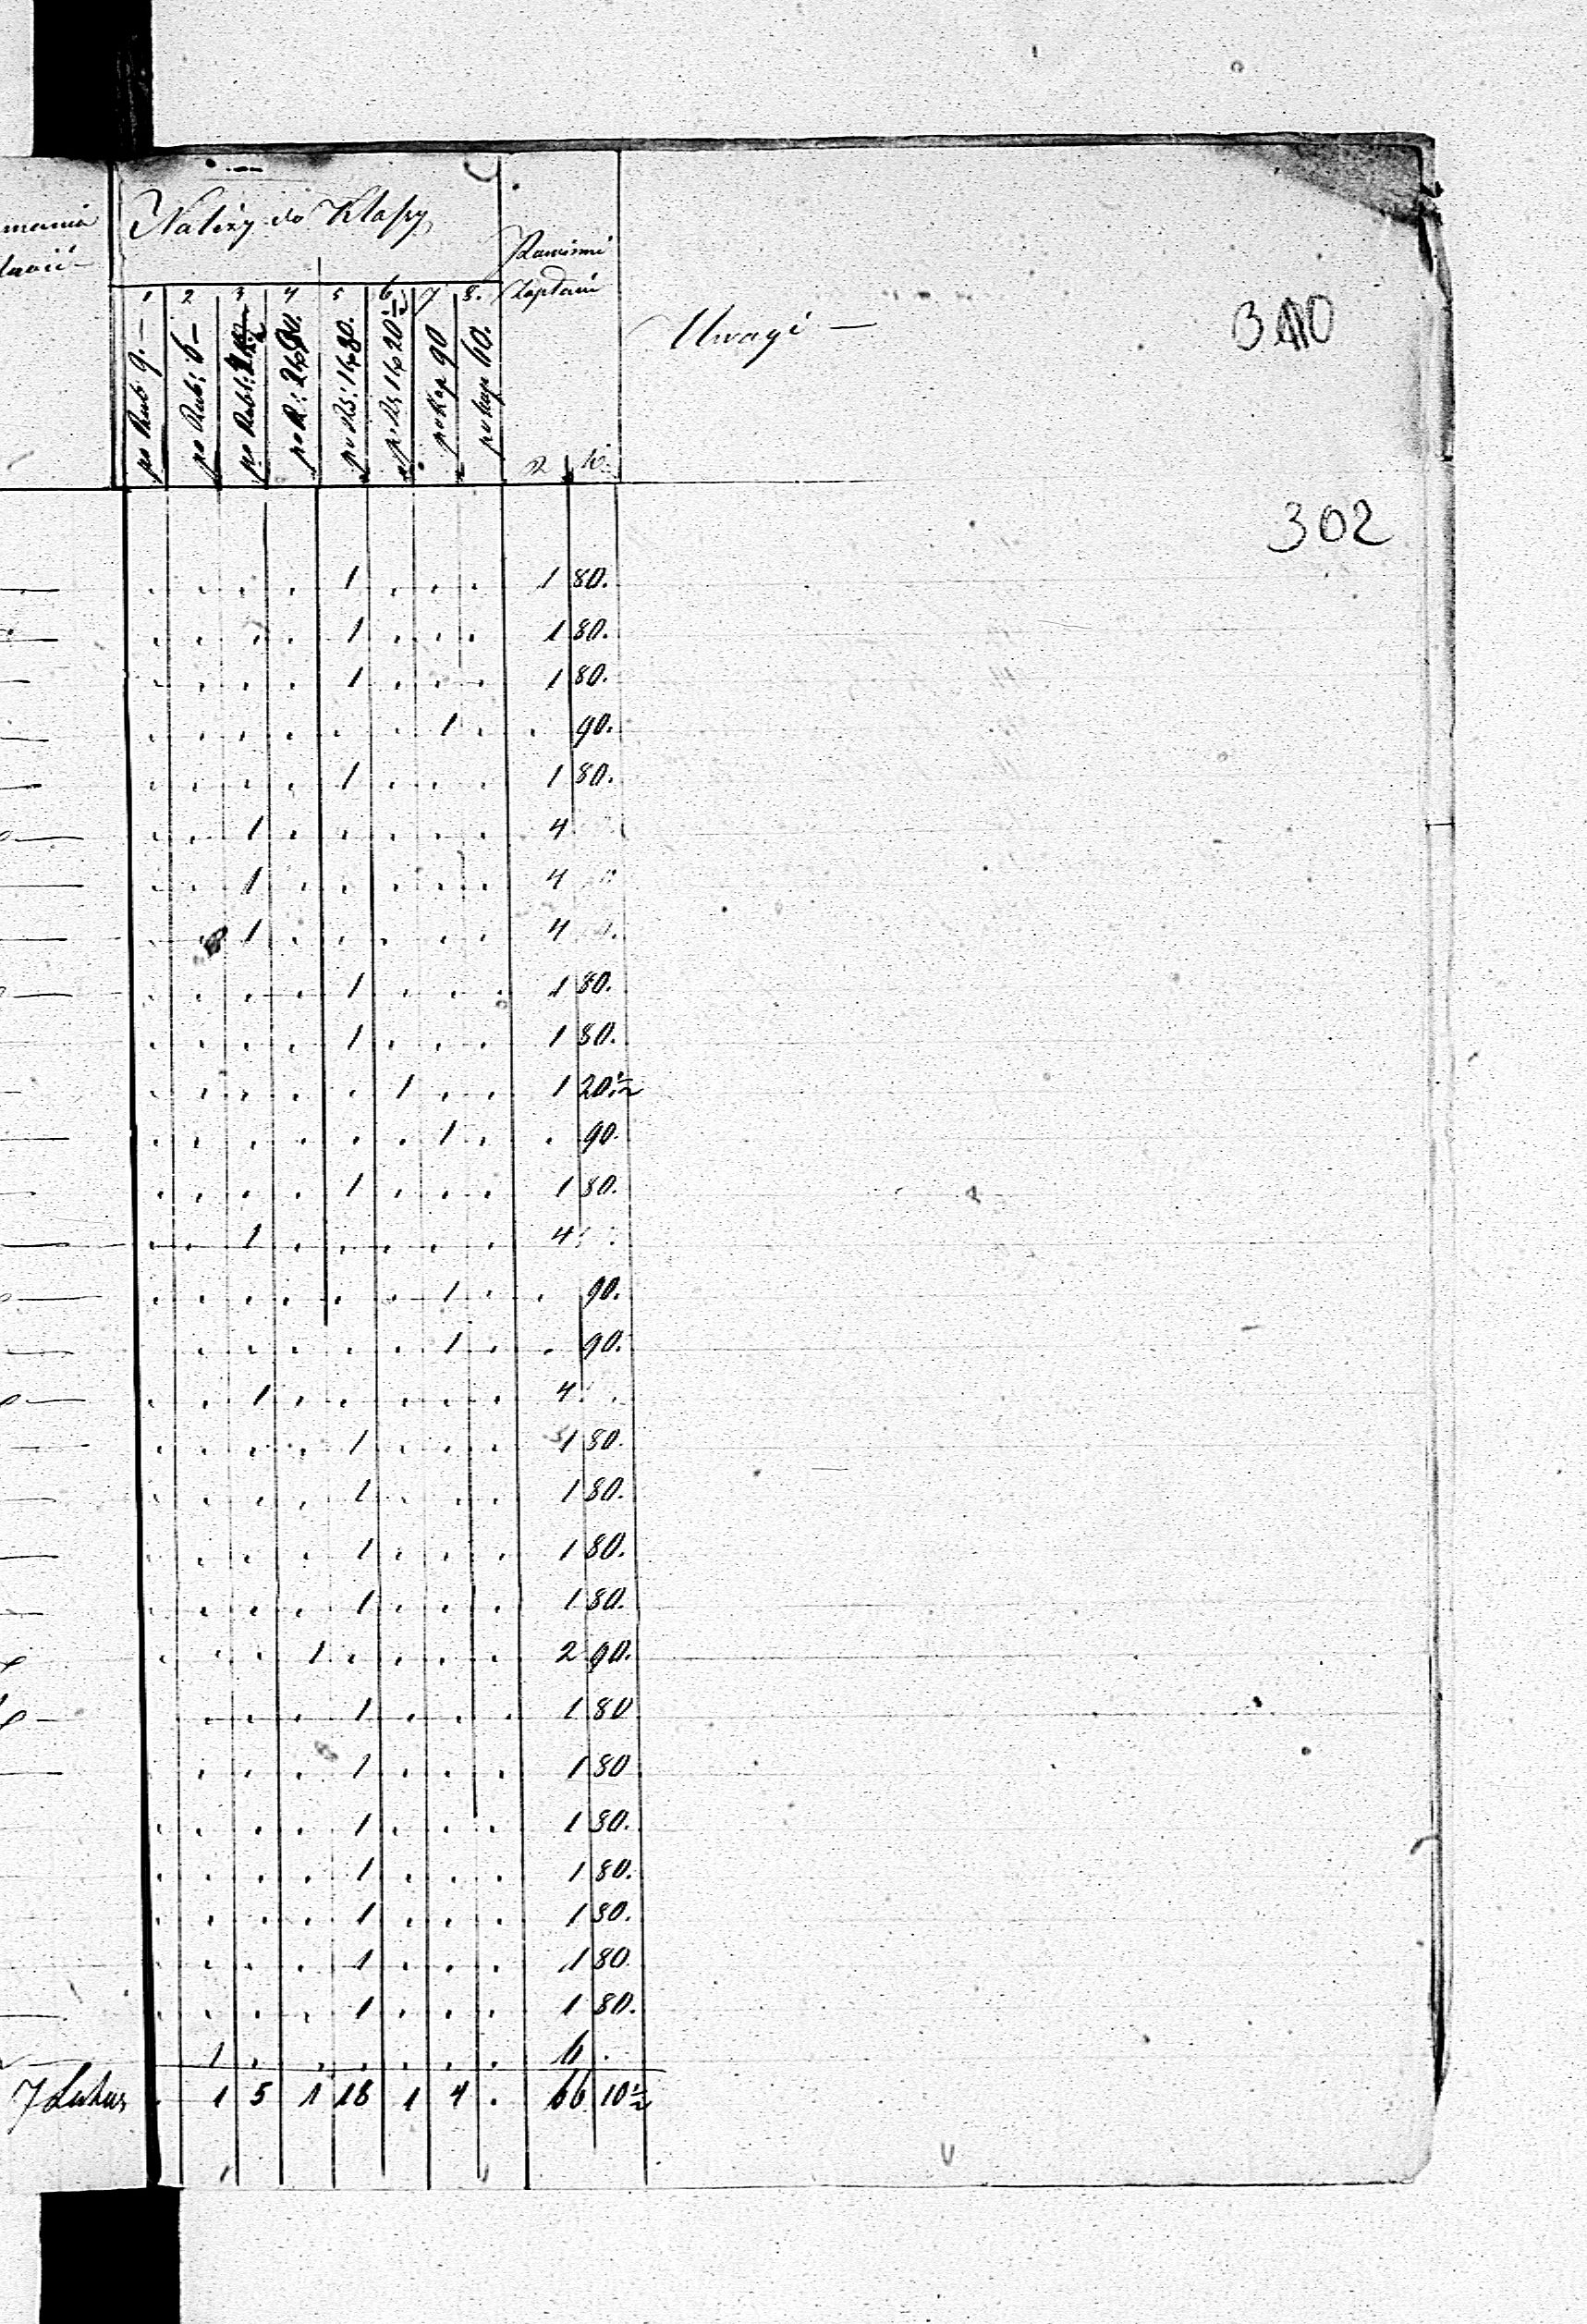 Należy do Klassy
Powinni
zapłacić
Uwagi —
310
1 2 3 4 5 6 7 8.
po Rub 9.— po Rub: 6— po Rubl: po R: 2 kp 90. po Rs: 1 kp 80. p. Rs 1 kp 20½ po Kop 90 po kop 60.
R k.
302
. . . . 1 . . . 1 80.
. . . . 1 . . . 1 80.
. . . . 1 . . . 1 80.
. . . . . . 1 . . 90.
. . . . 1 . . . 1 80.
. . 1 . . . . . 4
. . 1 . . . . . 4
. . 1 . . . . . 4
. . . . 1 . . . 1 80.
. . . . 1 . . . 1 80.
. . . . . 1 . . 1 20½
. . . . . . 1 . . 90.
. . . . 1 . . . 1 80.
. . 1 . . . . . 4
. . . . . . 1 . . 90.
. . . . . . 1 . . 90.
. . 1 . . . . . 4
. . . . 1 . . . 1 80.
. . . . 1 . . . 1 80.
. . . . 1 . . . 1 80.
. . . . 1 . . . 1 80.
. . . 1 . . . . 2 90.
. . . . 1 . . . 1 80
. . . . 1 . . . 1 80
. . . . 1 . . . 1 80.
. . . . 1 . . . 1 80.
. . . . 1 . . . 1 80.
. . . . 1 . . . 1 80
. . . . 1 . . . 1 80.
1 . . . . . . 6 .
. 1 5 1 18 1 4 . 66 10½